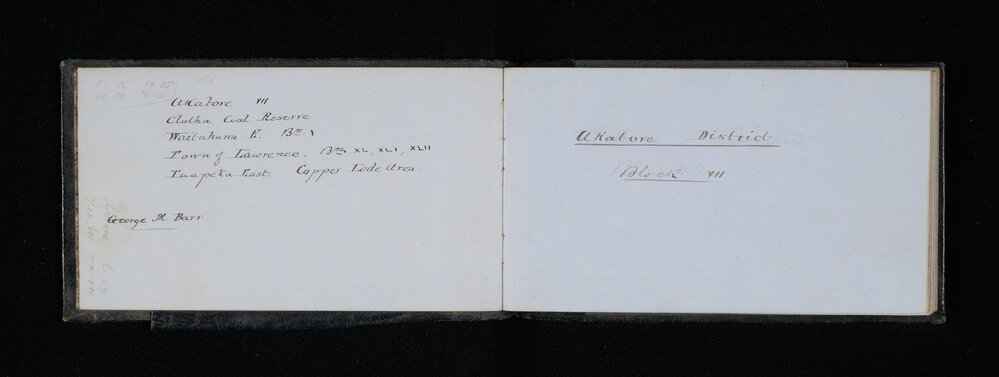 Akatore VII
Clutha Coal Reserve
Waitahuna E. Bn 1
Town of Lawrence. Bns XL, XLI, XLII
Tuapeka East. Copper Lode Area.
George M Barr
Akatore District
Block VII